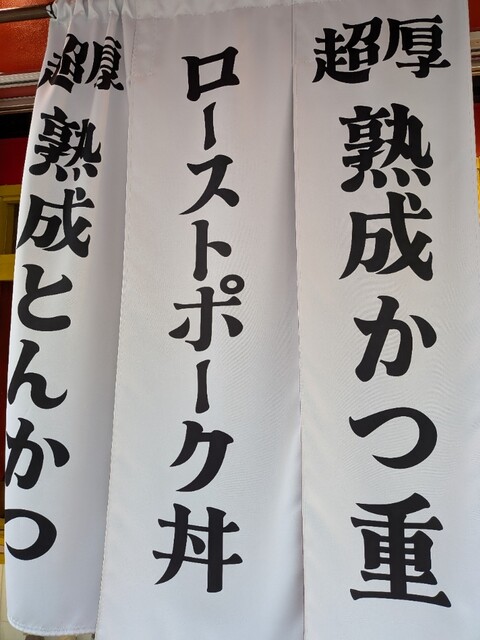 超厚
熟成かつ重
ローストポーク丼
超厚
熟成とんかつ